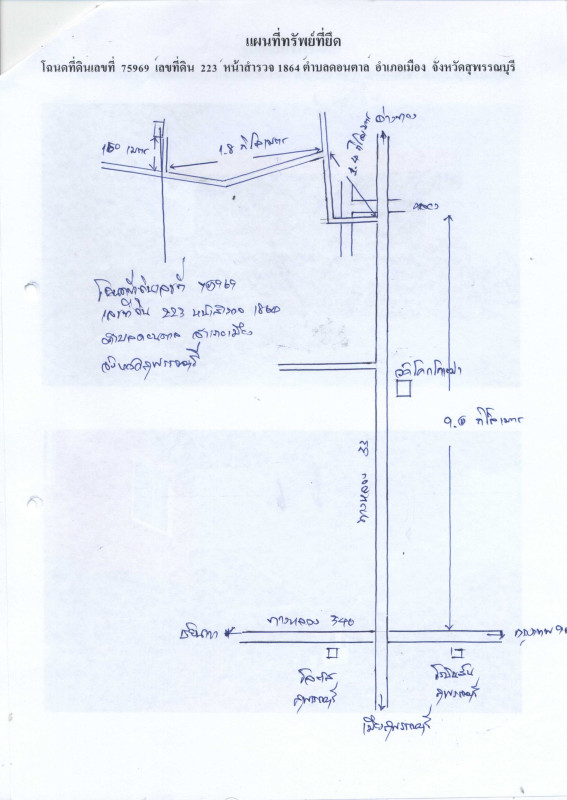 แผนที่ทรัพย์ที่ยึด
โฉนดที่ดินเลขที่ 75969 เลขที่ดิน 223 หน้าสำรวจ 1864 ตำบลดอนตาล อำเภอเมือง จังหวัดสุพรรณบุรี
อ่างทอง
150 เมตร
1.8 กิโลเมตร
กิโลเมตร
คลอง
โฉนดที่ดินเลขที่ 75969
เลขที่ดิน 223 หน้าสำรวจ 1864
ตำบลดอนตาล อำเภอเมือง
จังหวัดสุพรรณบุรี
กิโลเมตร
ทางหลวง 33
ทางหลวง 340
ชัยนาท
กรุงเทพฯ
สุพรรณบุรี
โรบินสัน
สุพรรณบุรี
เมืองสุพรรณบุรี